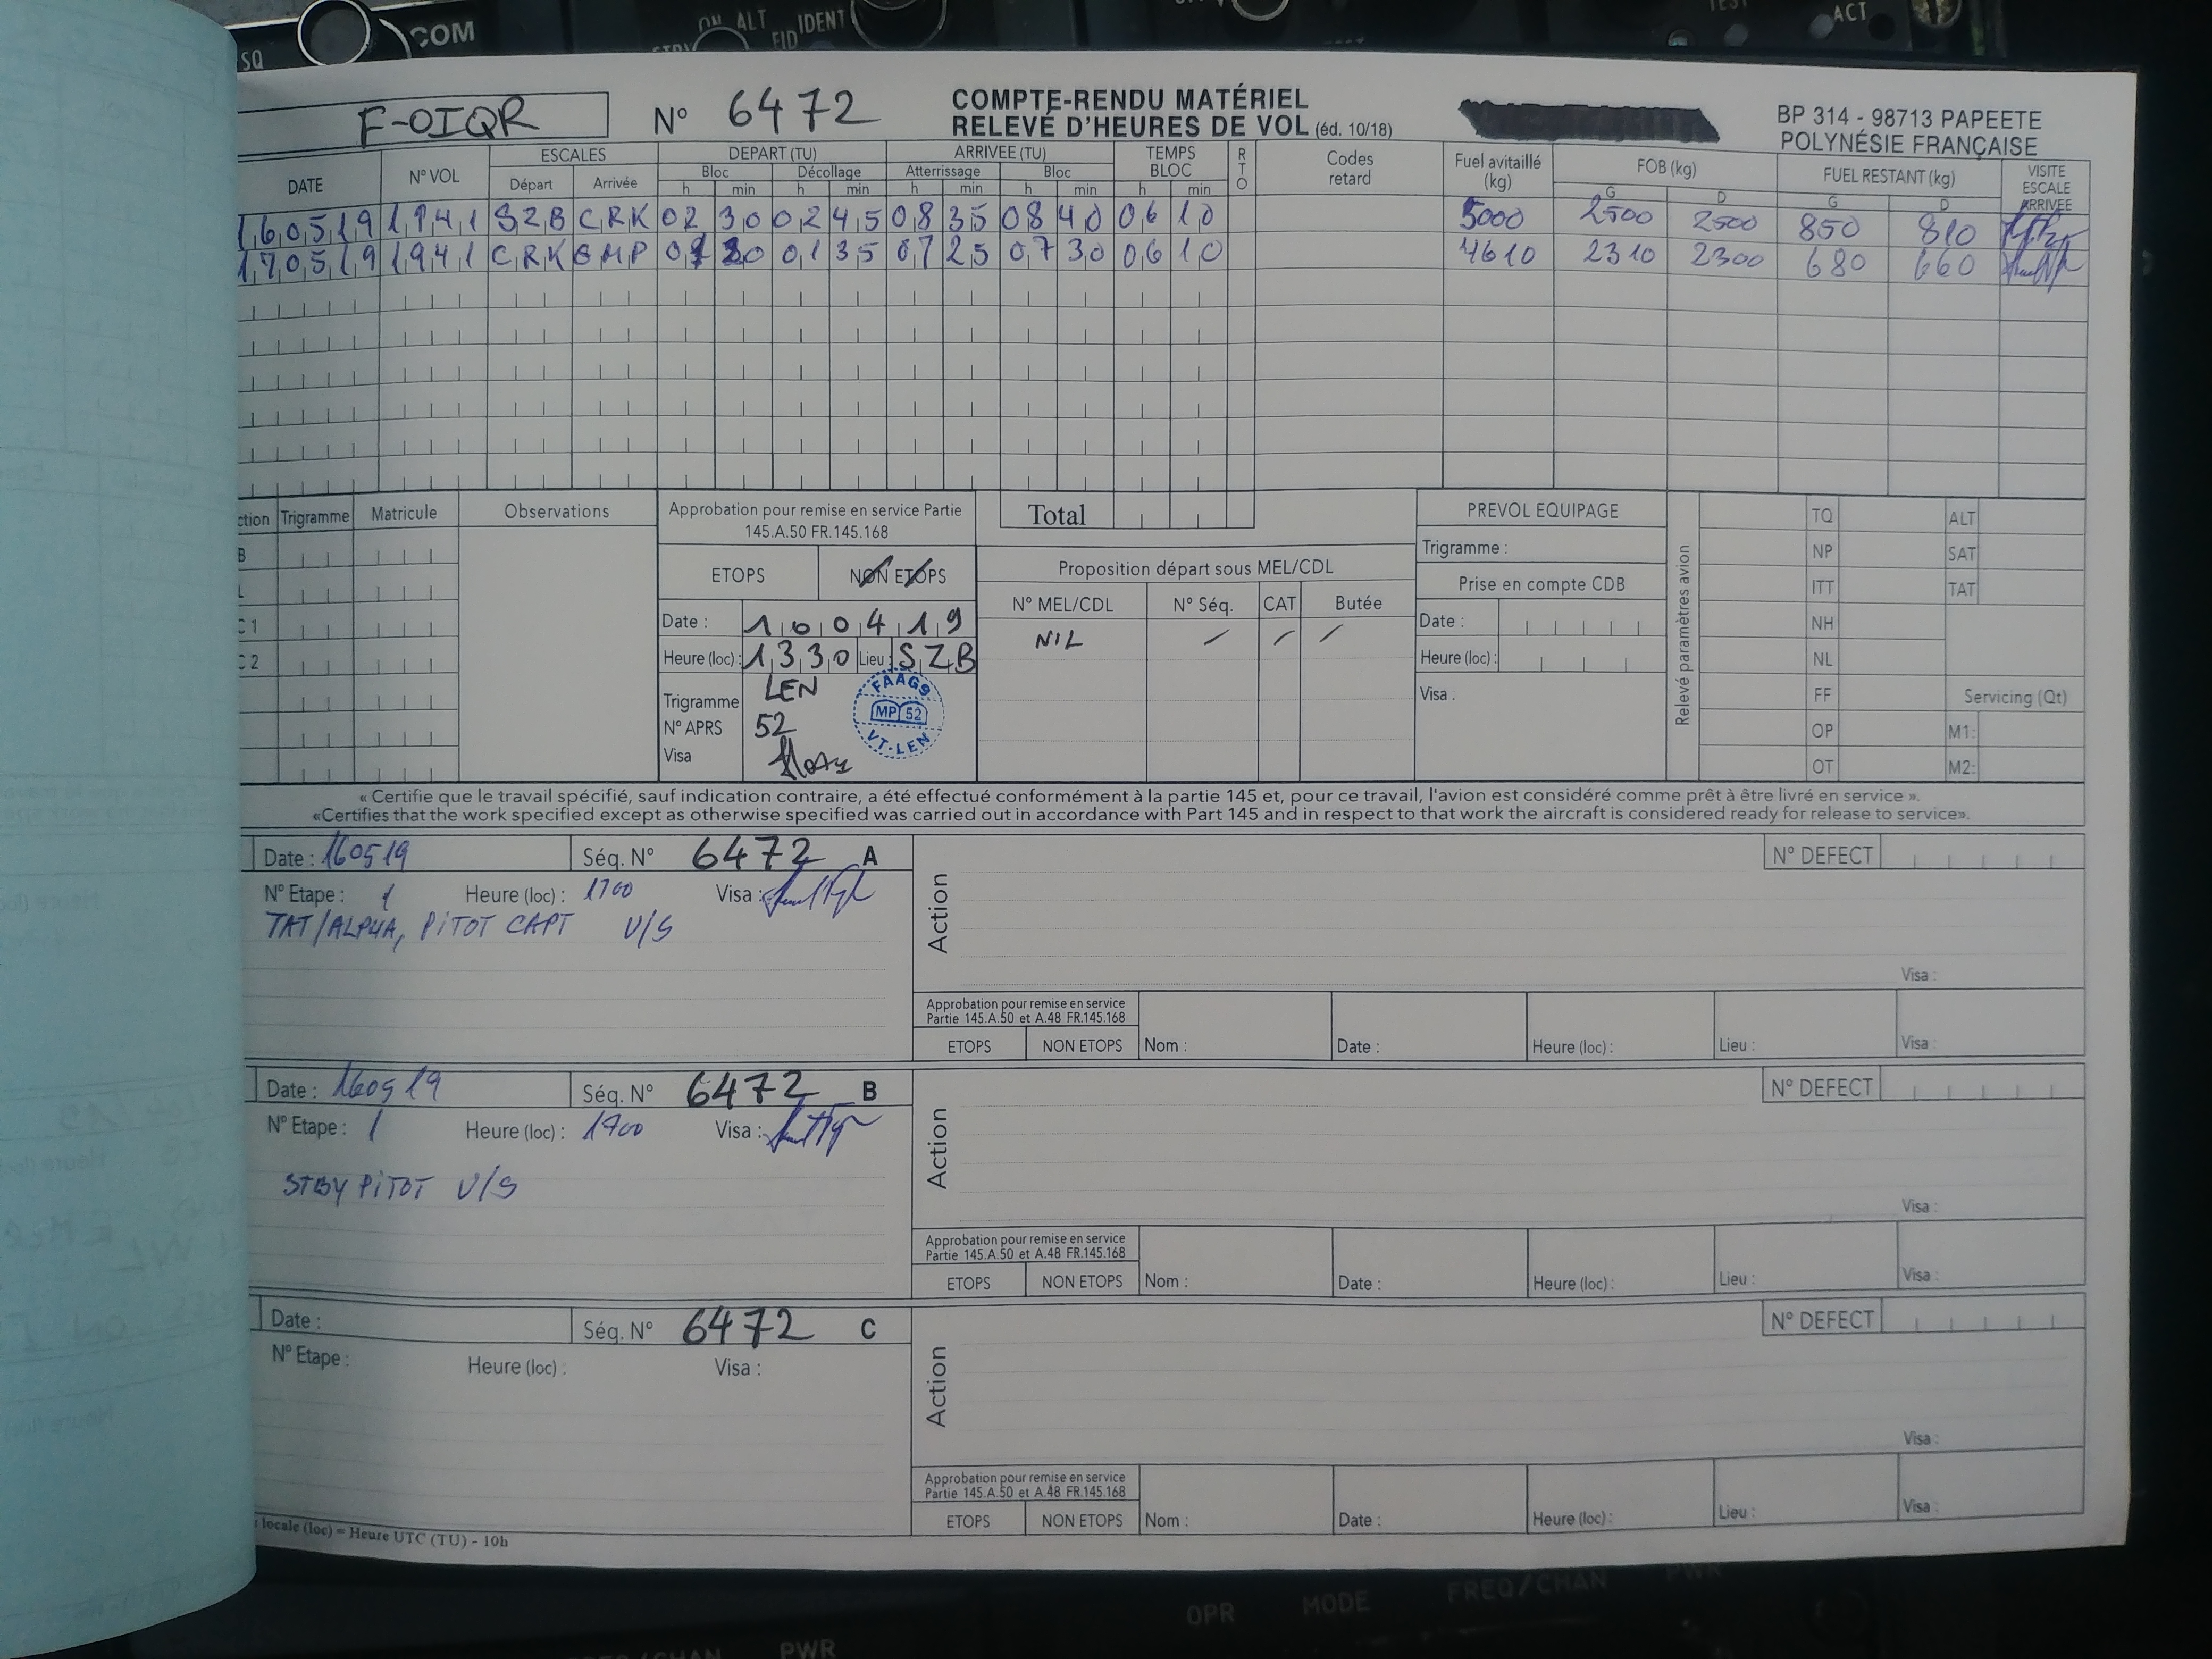 SQ COM ON ALT IDENT ACT
F-OIQR N° 6472 COMPTE-RENDU MATÉRIEL BP 314 - 98713 PAPEETE
RELEVÉ D'HEURES DE VOL (éd. 10/18) POLYNÉSIE FRANÇAISE
DATE N° VOL ESCALES DEPART (TU) ARRIVEE (TU) TEMPS BLOC RTO Codes retard Fuel avitaillé (kg) FOB (kg) FUEL RESTANT (kg) VISITE ESCALE ARRIVEE
Départ Arrivée Bloc Décollage Atterrissage Bloc
h min h min h min h min h min G D G D
160519 1941 SZB CRK 02 30 02 45 08 35 08 40 06 10 5000 2500 2500 850 810
170519 1941 CRK GMP 01 20 01 35 07 25 07 30 06 10 4610 2310 2300 680 660
ction Trigramme Matricule Observations Approbation pour remise en service Partie Total PREVOL EQUIPAGE Relevé paramètres avion TQ ALT
145.A.50 FR.145.168
B ETOPS NON ETOPS Proposition départ sous MEL/CDL Trigramme : NP SAT
L N° MEL/CDL N° Séq. CAT Butée Prise en compte CDB ITT TAT
C 1 Date : 160419 NIL / / / Date : NH
C 2 Heure (loc) : 1330 Lieu : SZB Heure (loc) : NL
Trigramme LEN FAAG9 Visa : FF Servicing (Qt)
N° APRS 52 MP 52 OP M1:
Visa VT-LEN OT M2:
« Certifie que le travail spécifié, sauf indication contraire, a été effectué conformément à la partie 145 et, pour ce travail, l'avion est considéré comme prêt à être livré en service ».
«Certifies that the work specified except as otherwise specified was carried out in accordance with Part 145 and in respect to that work the aircraft is considered ready for release to service».
Date : 160519 Séq. N° 6472 A Action N° DEFECT
N° Etape : 1 Heure (loc) : 1700 Visa :
TAT/ALPHA, PITOT CAPT U/S
Visa :
Approbation pour remise en service
Partie 145.A.50 et A.48 FR.145.168
ETOPS NON ETOPS Nom : Date : Heure (loc) : Lieu : Visa :
Date : 160519 Séq. N° 6472 B Action N° DEFECT
N° Etape : 1 Heure (loc) : 1700 Visa :
STBY PITOT U/S
Visa :
Approbation pour remise en service
Partie 145.A.50 et A.48 FR.145.168
ETOPS NON ETOPS Nom : Date : Heure (loc) : Lieu : Visa :
Date : Séq. N° 6472 C Action N° DEFECT
N° Etape : Heure (loc) : Visa :
Visa :
Approbation pour remise en service
Partie 145.A.50 et A.48 FR.145.168
ETOPS NON ETOPS Nom : Date : Heure (loc) : Lieu : Visa :
locale (loc) = Heure UTC (TU) - 10h
OPR MODE FREQ/CHAN PWR
PWR